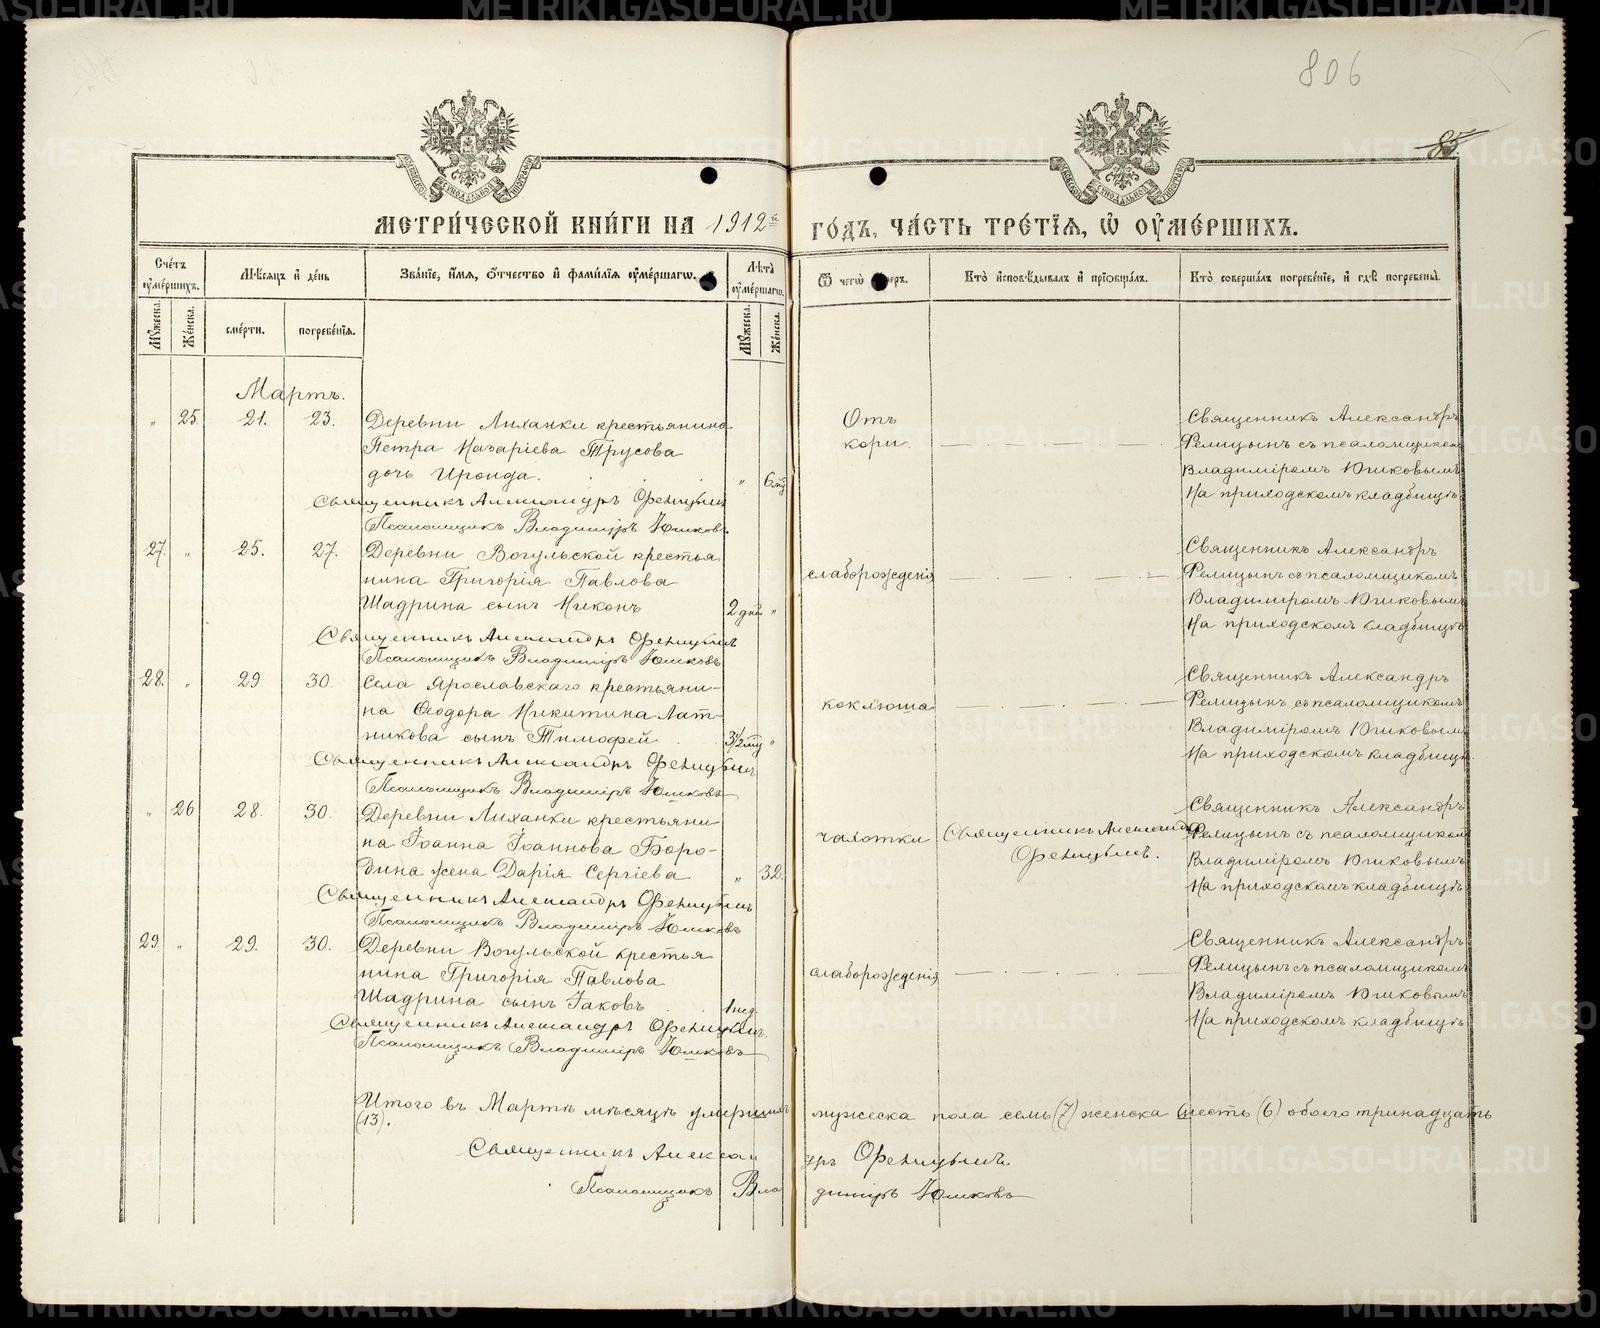 806
85.
МЕТРИ́ЧЕСКОЙ КНИ́ГИ НА 1912й ГО́ДЪ, ЧА́СТЬ ТРЕ́ТЇЯ, Ѽ ОУ҆МЕ́РШИХЪ.
Сче́тъ оу҆ме́ршихъ.
Мѣ́сяцъ и҆ де́нь
Зва́нїе, и҆́мя, ѻ҆́тчество и҆ фами́лїя оу҆ме́ршагѡ.
Лѣ́та оу҆ме́ршагѡ.
Ѿ чегѡ̀
Кто̀ и҆сповѣ́дывалъ и҆ прїѡбща́лъ.
Кто̀ соверша́лъ погребе́нїе, и҆ гдѣ̀ погребены̀.
Мꙋ́жеска.
Же́нска.
сме́рти.
погребе́нїя.
Мꙋ́жеска.
Же́нска.
Мартъ.
" 25. 21. 23. Деревни Лиханки крестьянина
Петра Назаріева Трусова
дочь Ироида. " 6
Священникъ Александръ Фелицынъ
Псаломщикъ Владиміръ Юшковъ
Отъ
кори.
Священникъ Александръ
Фелицынъ съ псаломщикомъ
Владиміромъ Юшковымъ
На приходскомъ кладбищѣ
27. " 25. 27. Деревни Вогульской крестья
нина Григорія Павлова
Шадрина сынъ Никонъ 2 дня "
Священникъ Александръ Фелицынъ
Псаломщикъ Владиміръ Юшковъ
слаборожденія
Священникъ Александръ
Фелицынъ съ псаломщикомъ
Владиміромъ Юшковымъ
На приходскомъ кладбищѣ
28. " 29 30. Села Ярославскаго крестьяни-
на Ѳеодора Никитина Лат-
никова сынъ Тимофей 3½ "
Священникъ Александръ Фелицынъ
Псаломщикъ Владиміръ Юшковъ
коклюша
Священникъ Александръ
Фелицынъ съ псаломщикомъ
Владиміромъ Юшковымъ
На приходскомъ кладбищѣ
" 26 28. 30. Деревни Лиханки крестьяни
на Іоанна Іоаннова Боро-
дина жена Дарія Сергіева " 32.
Священникъ Александръ Фелицынъ
Псаломщикъ Владиміръ Юшковъ
чахотки
Священникъ Александръ
Фелицынъ.
Священникъ Александръ
Фелицынъ съ псаломщикомъ
Владиміромъ Юшковымъ
На приходскомъ кладбищѣ
29. " 29. 30. Деревни Вогульской крестья
нина Григорія Павлова
Шадрина сынъ Іаковъ 1 нед.
Священникъ Александръ Фелицынъ.
Псаломщикъ Владиміръ Юшковъ
слаборожденія
Священникъ Александръ
Фелицынъ съ псаломщикомъ
Владиміромъ Юшковымъ
На приходскомъ кладбищѣ
Итого въ Мартѣ мѣсяцѣ умершихъ мужеска пола семь (7) женска шесть (6) обоего тринадцать
(13).
Священникъ Александръ Фелицынъ.
Псаломщикъ Владиміръ Юшковъ
METRIKI.GASO-URAL.RU